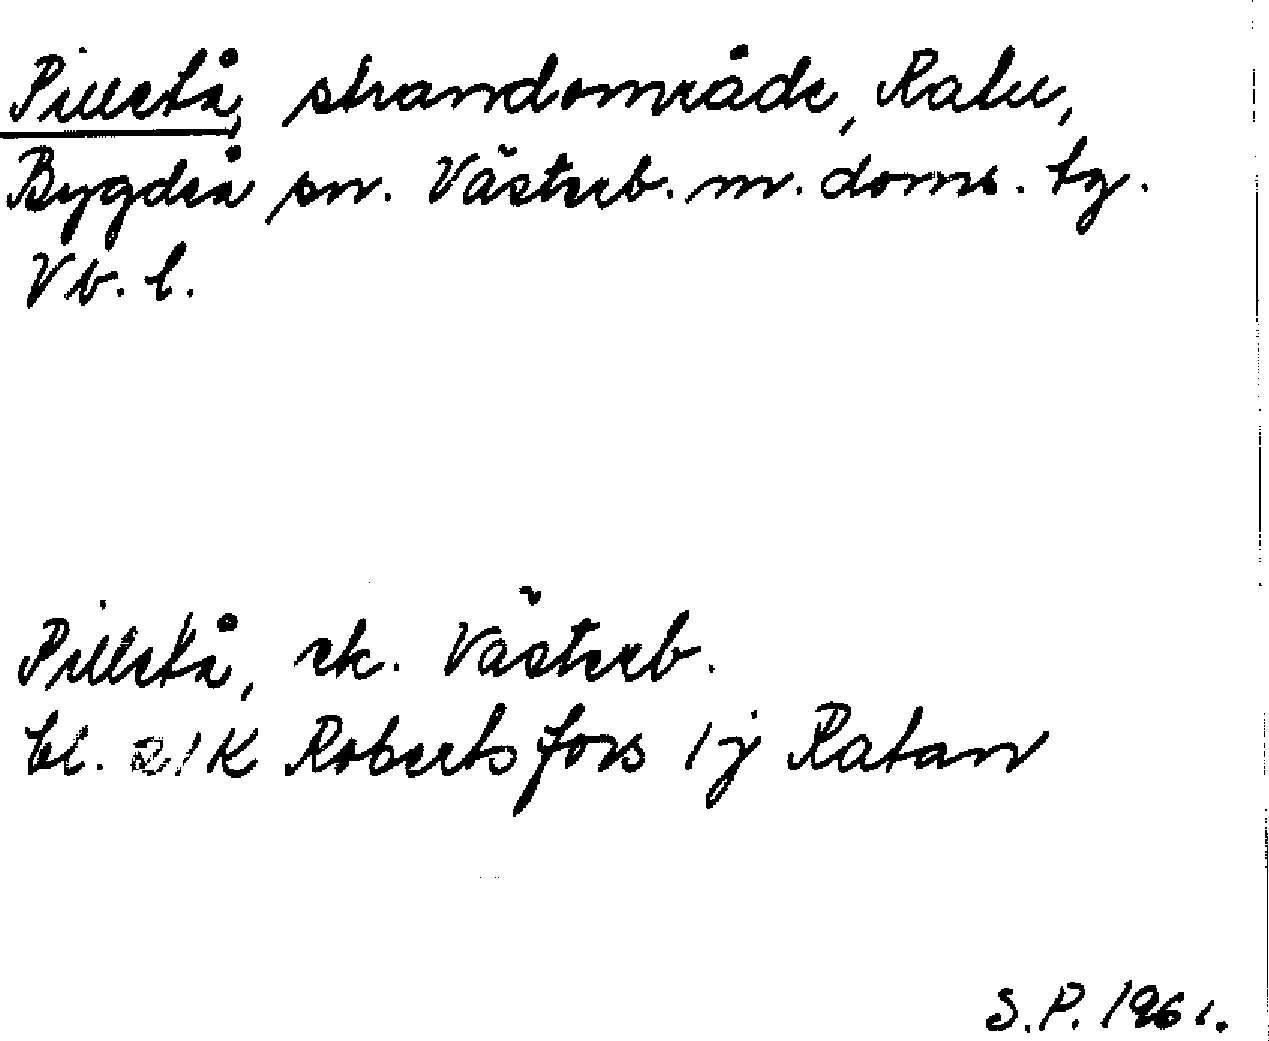 Pilletå, strandområde, Ratu,
Bygdeå sn. Västerb. m. doms. tg.
Vb. l.
Pilletå, ek. Västerb.
bl. 21K Robertsfors 1j Ratan
S.P. 1961.